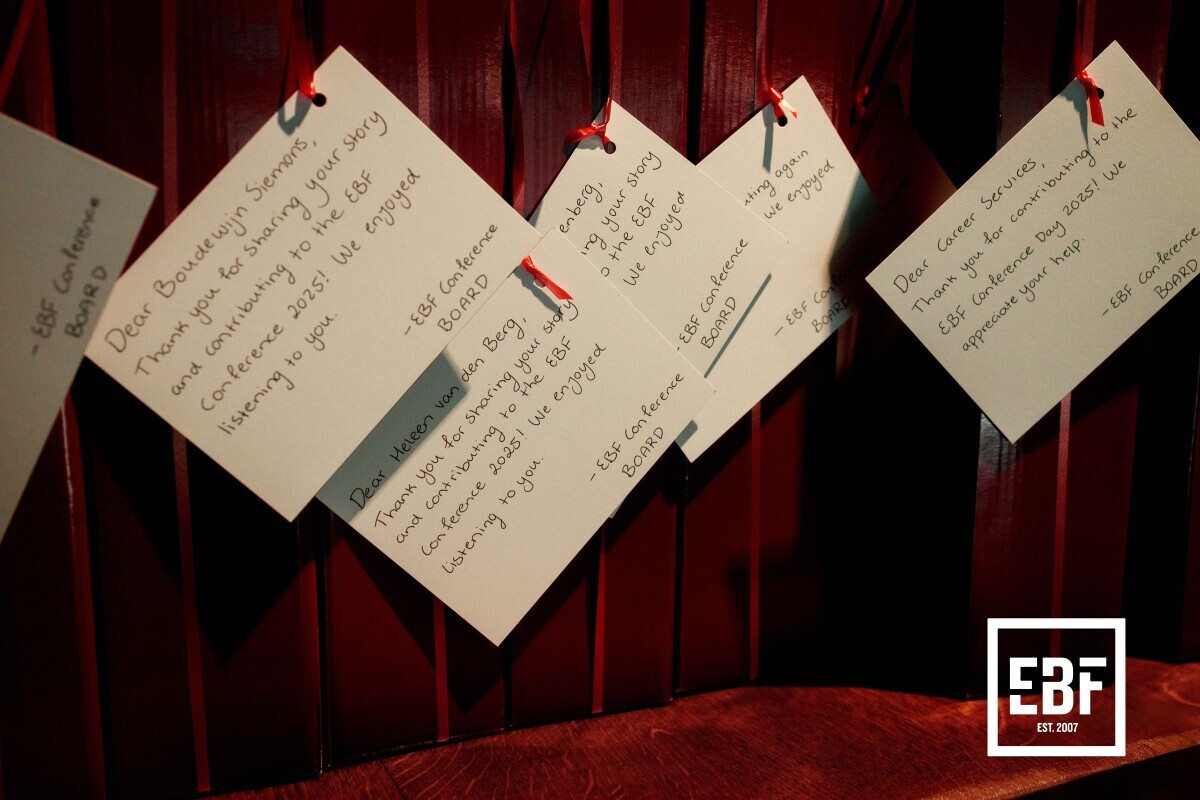 - EBF Conference
BOARD
Dear Boudewijn Siemons,
Thank you for sharing your story
and contributing to the EBF
Conference 2025! We enjoyed
listening to you.
- EBF Conference
BOARD
enberg,
ng your story
o the EBF
We enjoyed
- EBF Conference
BOARD
Dear Heleen van den Berg,
Thank you for sharing your story
and contributing to the EBF
Conference 2025! We enjoyed
listening to you.
- EBF Conference
BOARD
uting again
We enjoyed
- EBF Conf
BOARD
Dear Career Services,
Thank you for contributing to the
EBF Conference Day 2025! We
appreciate your help.
- EBF Conference
BOARD
EBF
EST. 2007